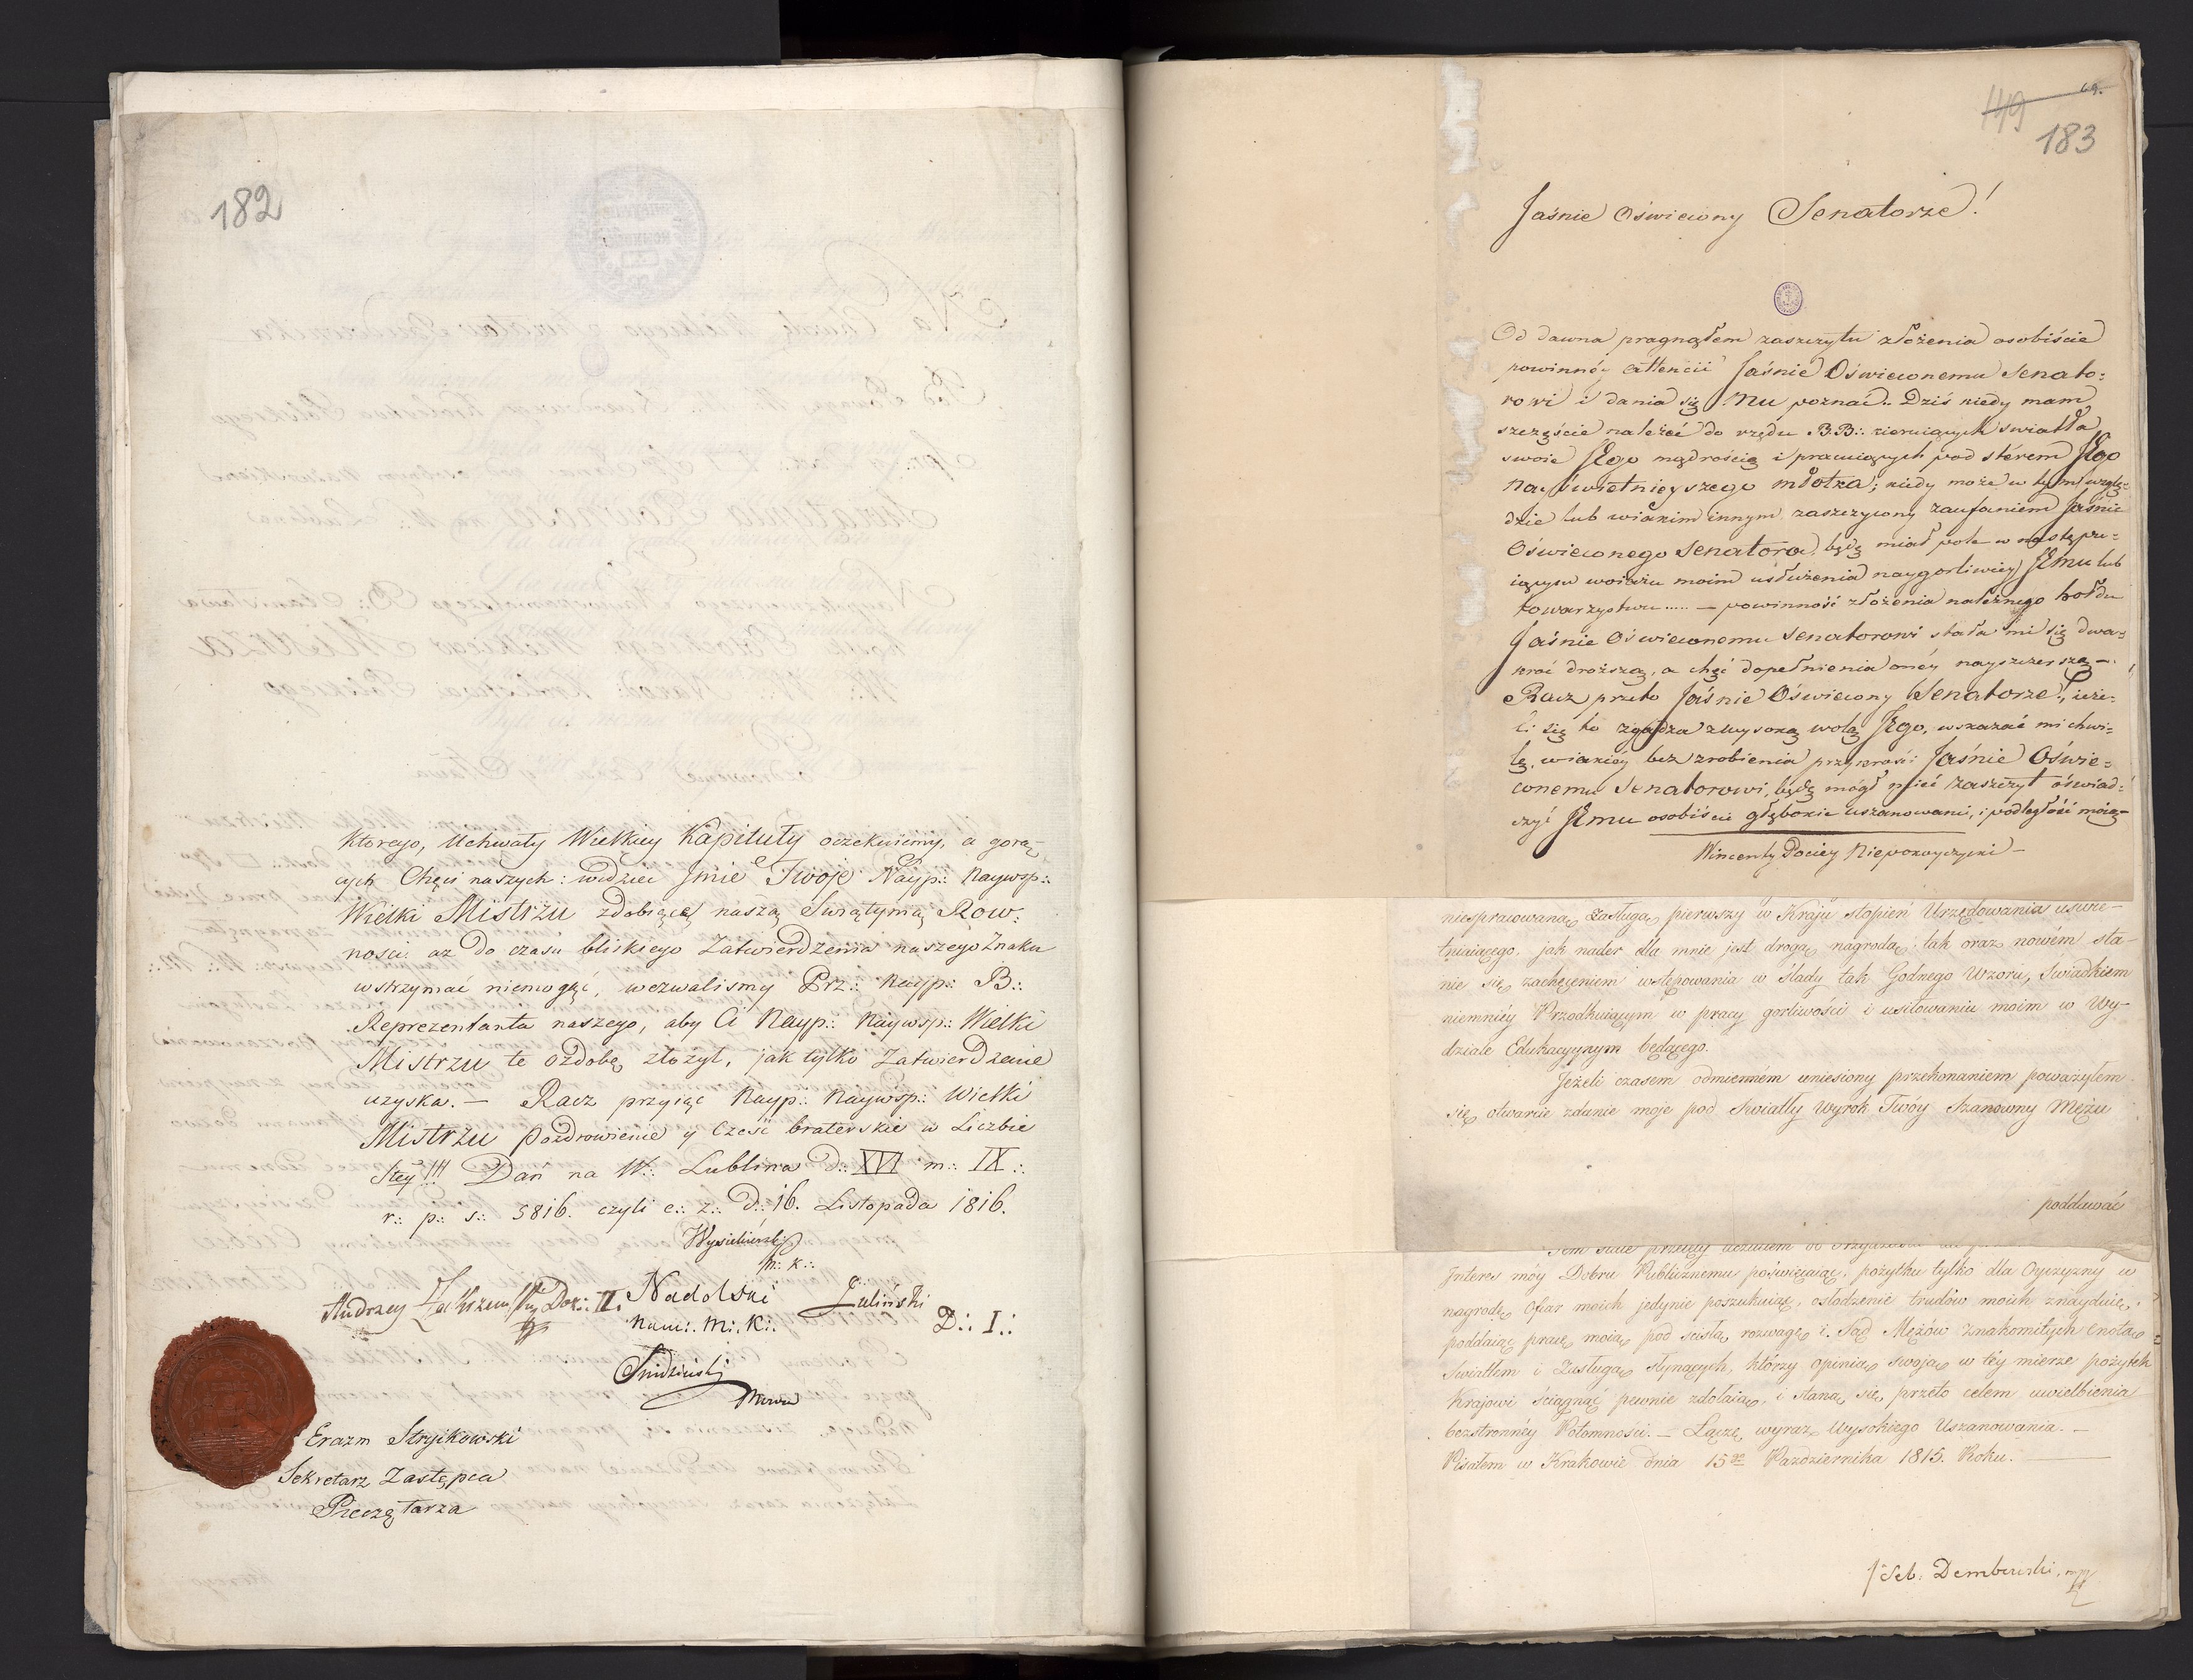 182
którego, Uchwały Wielkiey Kapituły oczekuiemy, a gorą-
cych Chęci naszych: widzieć Jmie Twoje Nayp:. Naywsp:.
Wielki Mistrzu zdobiące naszą Swiątynią Row:
nosci aż do czasu bliskiego Zatwierdzenia naszego Znaku
wstrzymać niemogąc, wezwalismy Prz:. Nayp:. B:.
Reprezentanta naszego, aby Ci Nayp:. Naywsp:. Wielki
Mistrzu te ozdobę złożył, jak tylko Zatwierdzenie
uzyska. — Racz przyiąc Nayp:. Naywsp:. Wielki
Mistrzu pozdrowienie y Cześć braterskie w Liczbie
3tey!!! Dan na W:. Lublina D:. XVI m:. IX:.
r:. p:. s:. 5816. czyli e:. z:. D:. 16. Listopada 1816.
M:. K:.
Andrzey II:.
Nadolski
Nam:. M:. K:.
Juliński
D:. I:.
Erazm Stryikowski
Sekretarz Zastępca
Pieczętarza
149
69.
183
Jaśnie Oświecony Senatorze!
Od dawna pragnąłem zaszczytu złożenia osobiście
powinnéy attencii Jaśnie Oświeconemu Senato:
rowi i dania się Mu poznać. Dziś kiedy mam
szczęście należéć do rzędu B.B:. kieruiących swiatła
swoie JEgo mądrością i pracuiących pod stérem JEgo
nayświetnieyszego młotka; kiedy może w tym wzglę:
dzie lub wiakim innym zaszczycony zaufaniem Jaśnie
Oświeconego Senatora, będę miał pole w następu:
iącym woiażu moim usłużenia naygorliwiey JEmu lub
towarzystwu ..... — powinność złożenia należnego hołdu
Jaśnie Oświeconemu Senatorowi stała mi się dwa:
kroć droższą, a chęć dopełnienia onéy nayszczerszą —
Racz przeto Jaśnie Oświecony Senatorze!, ieże:
li się to zgadza z wysoką wolą JEgo, wskazać mi chwi:
lę, wiakiéy bez zrobienia przykrości Jaśnie Oświe:
conemu Senatorowi, będę mógł mieć zaszczyt oświad:
czyć JEmu osobiście głębokie uszanowanie, i podległość moią —
Wincenty Pociey Niepokoyczycki —
niespracowaną zasługą pierwszy w Kraju stopień Urzędowania uswie-
tniaiącego, jak nader dla mnie jest drogą nagrodą: tak oraz nowém sta-
nie się zachęceniem wstępowania w ślady tak Godnego Wzoru, Swiadkiem
niemniéy Przodkuiącym w pracy gorliwości i usiłowaniu moim w Wy-
dziale Edukacyynym będącego.
Jeżeli czasem odmienném uniesiony przekonaniem poważyłem
się otwarcie zdanie moje pod Swiatły Wyrok Twóy Szanowny Mężu
poddawać
Interes móy Dobru Publicznemu poświęcaiąc, pożytku tylko dla Oyczyzny w
nagrodę Ofiar moich jedynie poszukuię, osłodzenie trudów moich znayduię,
poddaiąc pracę moią pod scisłą rozwagę i Sąd Mężów znakomitych cnotą
Swiatłem i Zasługą słynących, którzy opinią swoją w téy mierze pożytek
Krajowi ściągnąć pewnie zdołaią, i staną się przeto celem uwielbienia
bezstronnéy Potomności. — Łączę wyraz Wysokiego Uszanowania. —
Pisałem w Krakowie dnia 15go Pazdziernika 1815. Roku.